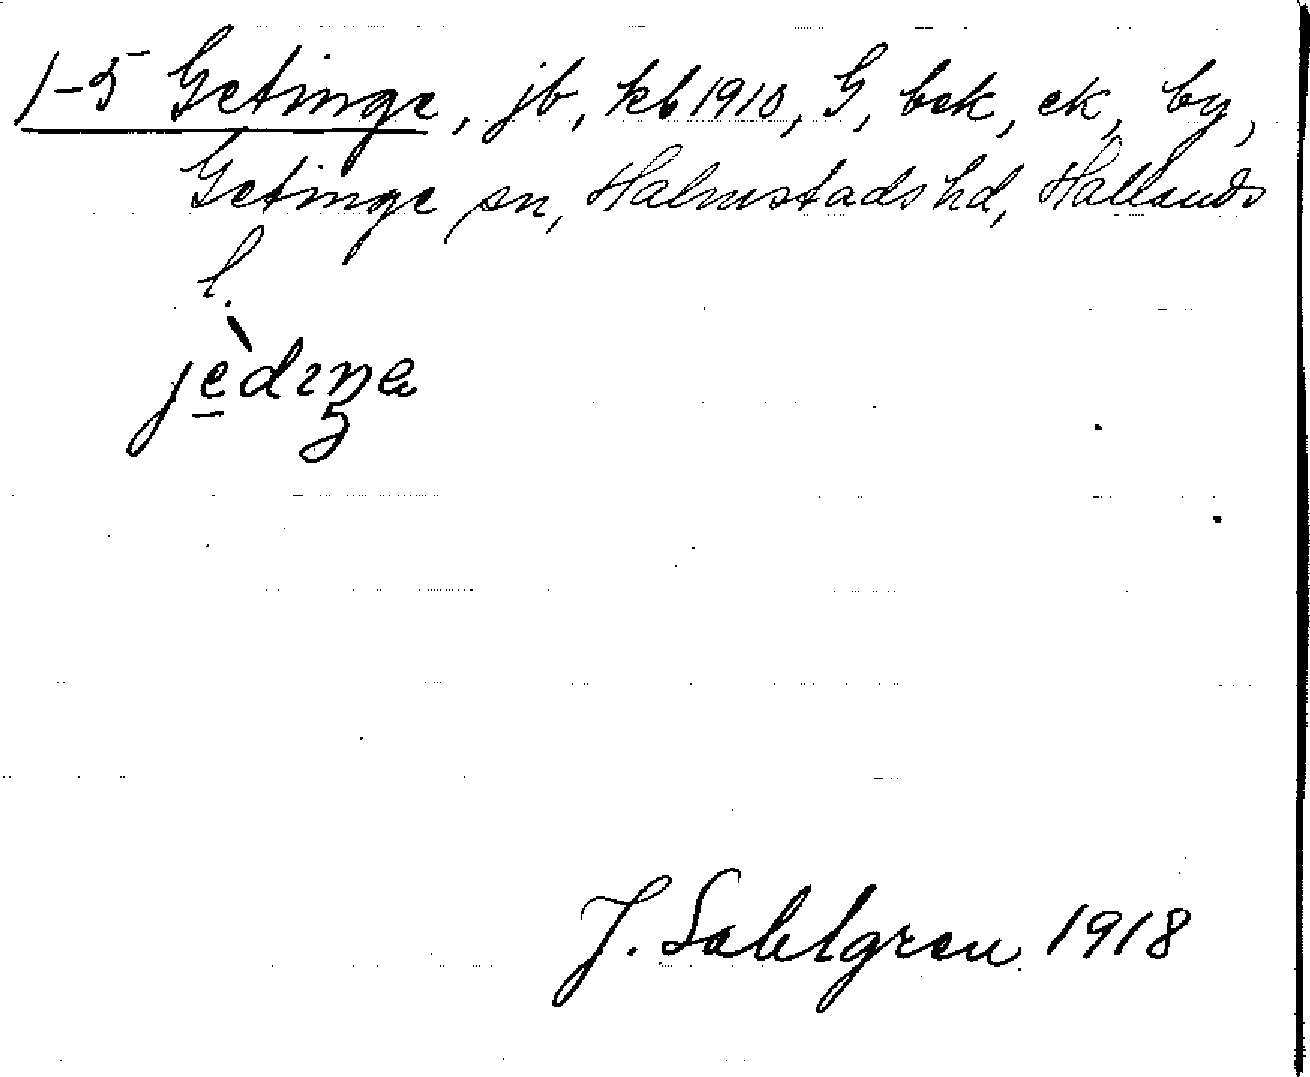 1-5 Getinge, jb, kb 1910, G, bek, ek, by,
Getinge sn, Halmstads hd, Hallands
l.
J. Sahlgren 1918